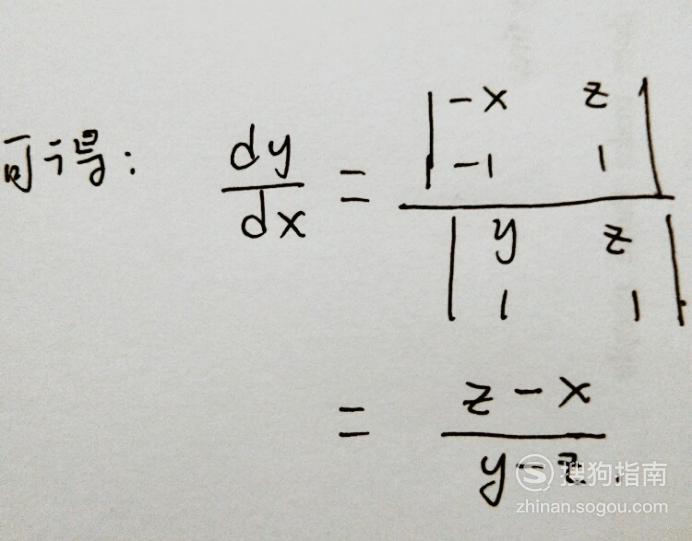 可得: dy/dx = |-x z; -1 1| / |y z; 1 1|
= z-x / y-z.
搜狗指南
zhinan.sogou.com